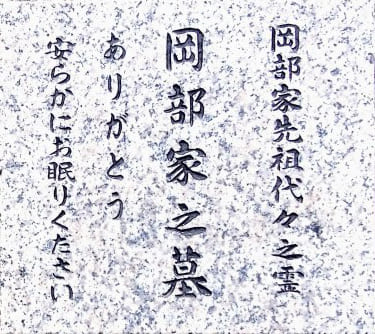 岡部家先祖代々之霊
岡部家之墓
ありがとう
安らかにお眠りください